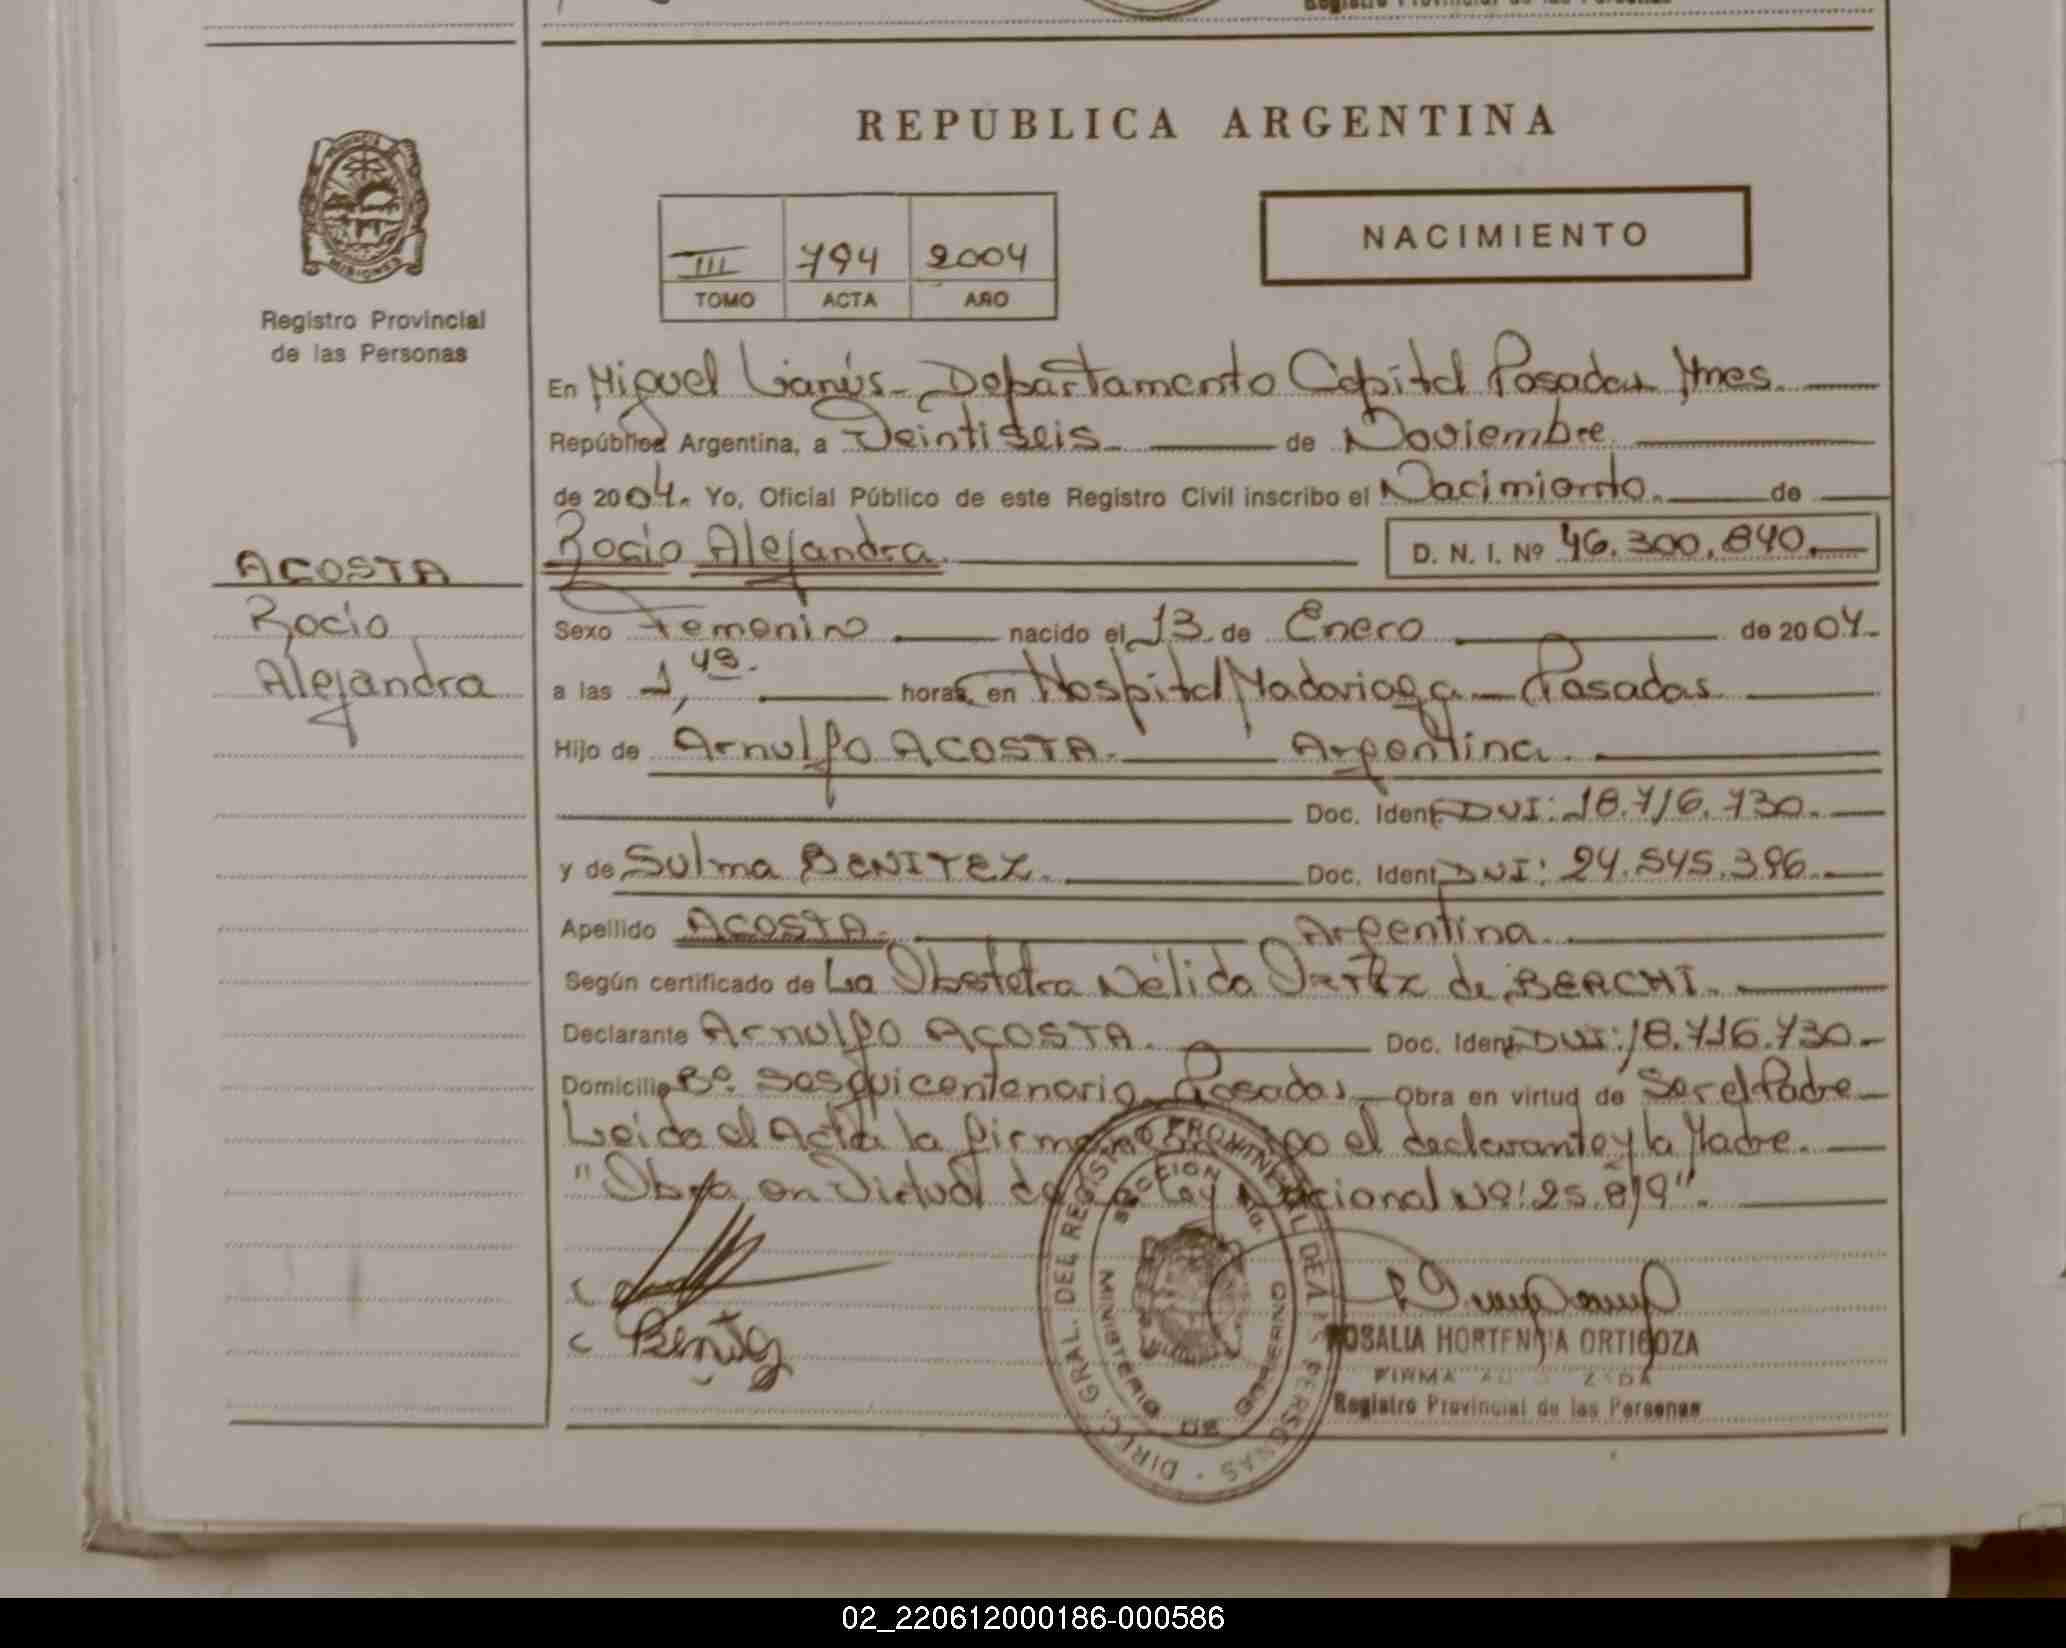 REPUBLICA ARGENTINA
NACIMIENTO
III 794 2004
TOMO ACTA AÑO
MISIONES
Registro Provincial
de las Personas
ACOSTA
Rocio
Alejandra
En Miguel Lanús - Departamento Capital Posadas Mnes.
República Argentina, a Veintiseis de Noviembre
de 2004. Yo, Oficial Público de este Registro Civil inscribo el Nacimiento. de
Rocio Alejandra. D. N. I. Nº 46.300.840.
Sexo Femenino nacido el 13 de Enero de 2004.
a las 1,48. horas, en Hospital Madariaga - Posadas
Hijo de Arnulfo ACOSTA. Argentina.
Doc. Ident. DNI: 18.716.730.
y de Sulma BENITEZ. Doc. Ident. DNI: 24.545.396.
Apellido ACOSTA. Argentina.
Según certificado de La Obstetra Nélida Ortiz de BERCHI.
Declarante Arnulfo ACOSTA. Doc. Ident. DNI: 18.716.730.
Domicilio Bº. Sesquicentenario Posadas Obra en virtud de Ser el Padre
Leida el Acta la firman el declarante y la Madre.
"Obra en Virtud de la Ley Nacional Nº: 25.819".
Benitez
DIREC. GRAL. DEL REGISTRO PROVINCIAL DE LAS PERSONAS
MINISTERIO DE GOBIERNO
SECCION
ROSALIA HORTENSIA ORTIGOZA
FIRMA AUTORIZADA
Registro Provincial de las Personas
02_220612000186-000586